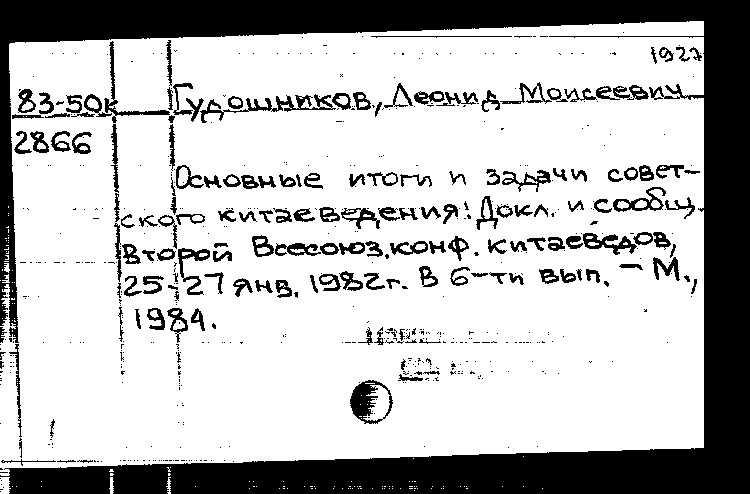 1927
83-50к Гудошников, Леонид Моисеевич
2866
Основные итоги и задачи совет-
ского китаеведения: Докл. и сообщ.
Второй Всесоюз. конф. китаеведов,
25-27 янв. 1982г. В 6-ти вып. - М.,
1984.